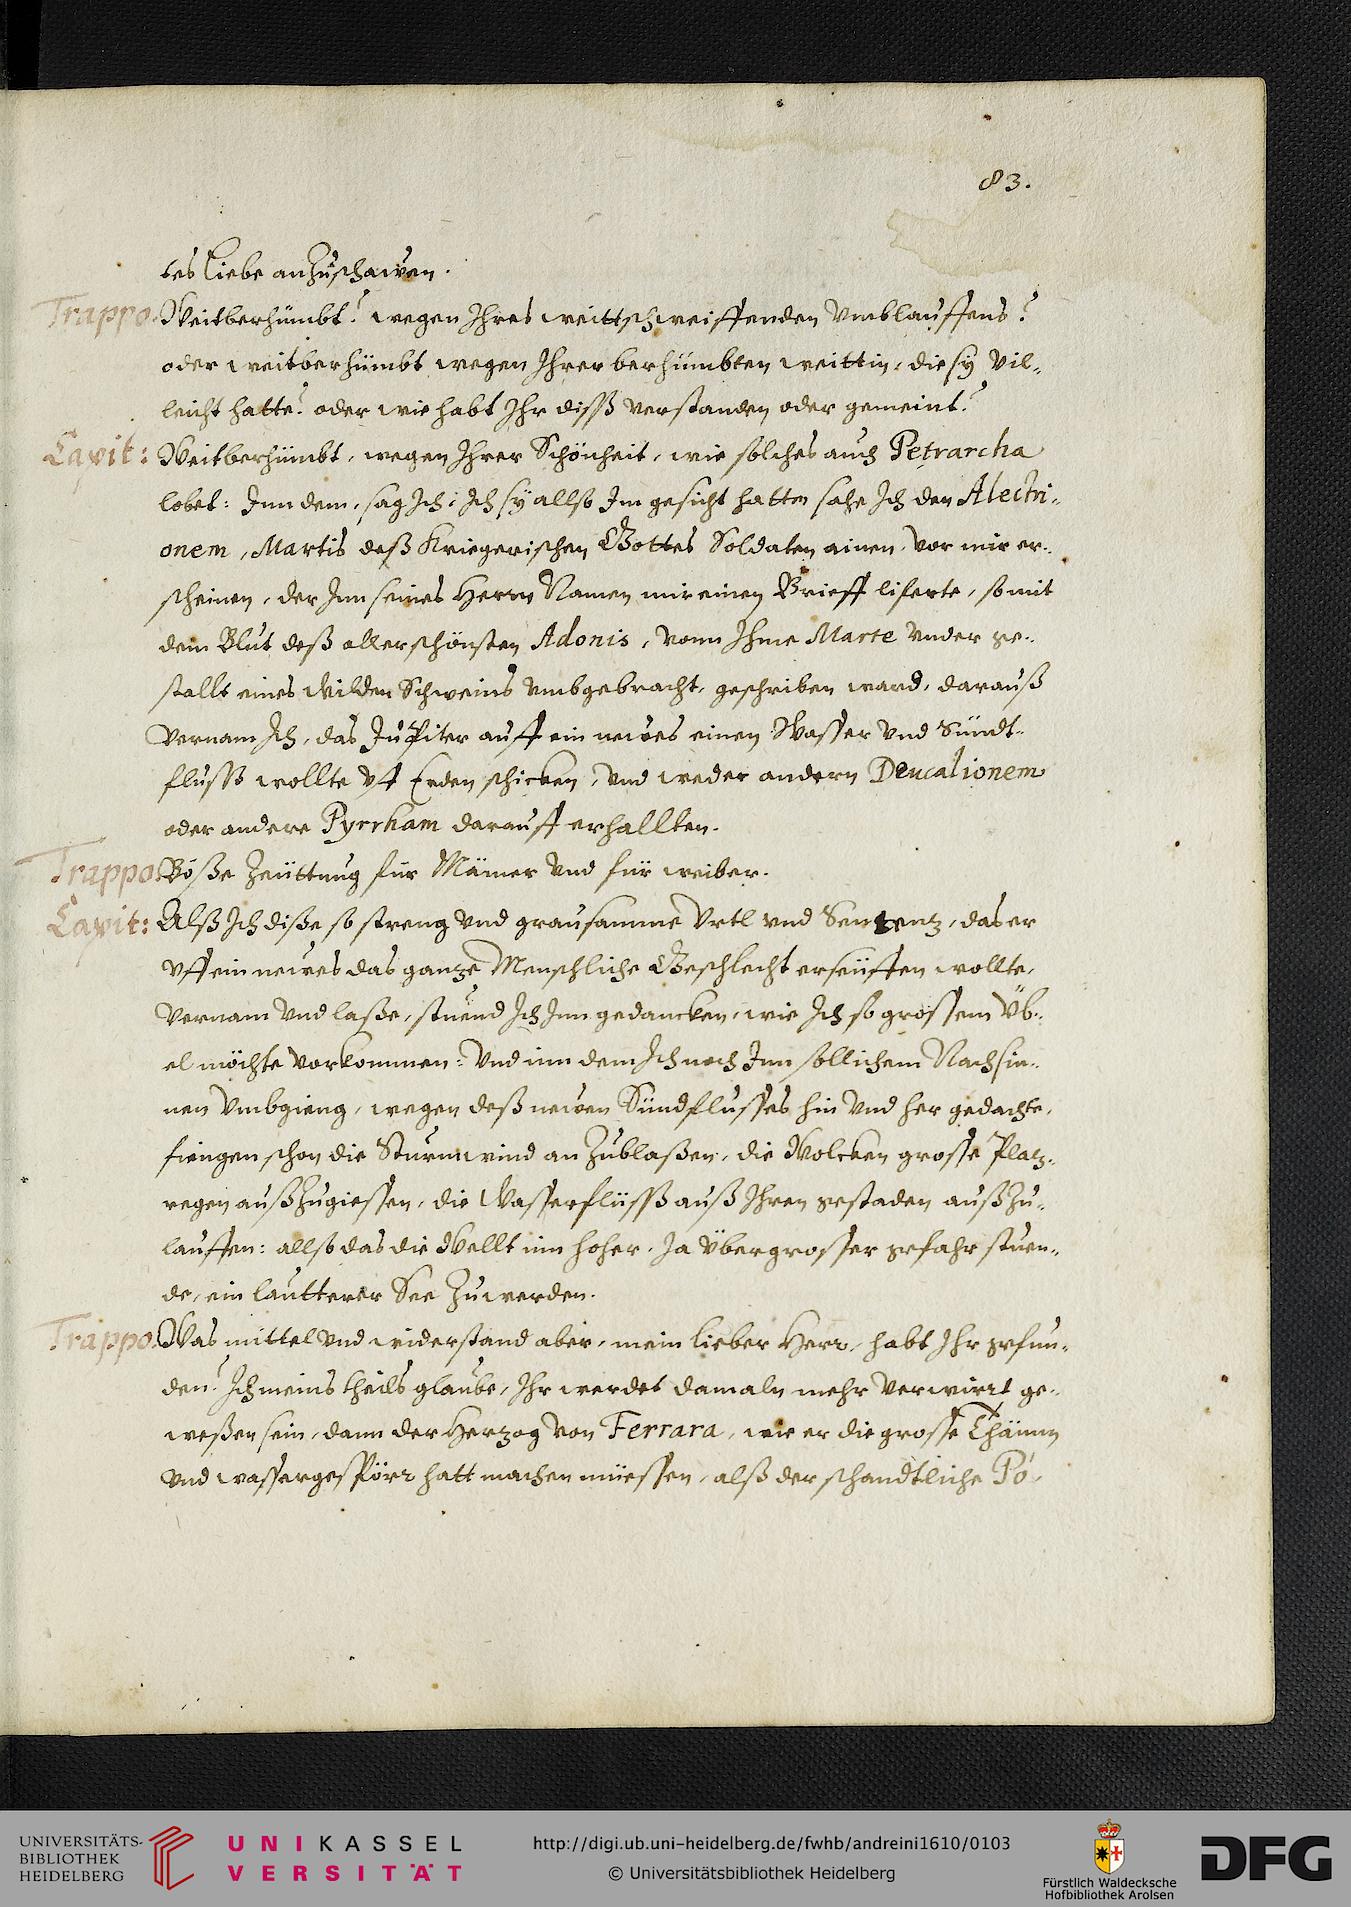 83.
tes Liebe anzuschawen.
Trappo. Weitberhümbt? wegen Ihres weittschweiffenden Vmblauffens?
oder weitberhümbt wegen Ihrer berhümbten weittin, die sy Vil-
leicht hatte? oder wie habt Ihr disß verstanden oder gemeint?
Capit: Weitberhümbt, wegen Ihrer Schönheit, wie solches auch Petrarcha
lobet: Inn dem, sag Ich, Ich sy allso Im gesicht hatten sahe Ich den Alectri-
onem, Martis deß Kriegerischen Gottes Soldaten ainen, vor mir er-
scheinen, der Inn seines Herrn Namen mir einen Brieff liferte, so mit
dem Blut deß allerschönsten Adonis, vonn Ihme Marte vnder ge-
stallt eines Wilden Schweins vmbgebracht, geschriben ward, darauß
vernam Ich, das Jupiter auff ein newes einen Wasser vnd Sündt-
flusß wollte vff Erden schicken, vnd weder andern Deucalionem
oder andere Pyrrham darauff erhallten.
Trappo. Böße Zeüttung für Männer vnd für weiber.
Capit: Alß Ich diße so streng vnd grausamme Vrtl vnd Sentenz, das er
vff ein newes das ganze Menschliche Geschlecht erseüffen wollte,
vernam vnd laße, stuend Ich Inn gedancken, wie Ich so grossem Üb-
el möchte vorkommen: vnd inn dem Ich noch Inn sollichem Nachsin-
nen vmbgieng, wegen deß newen Sündflusses hin vnd her gedachte,
fiengen schon die Sturmwind an Zublaßen, die Wolcken grosse Platz-
regen außzugiessen, die Wasserflüsß auß Ihren gestaden außzu-
lauffen: allso das die Wellt inn hoher, Ja übergrosser gefahr stuen-
de, ein lautterer See Zuwerden.
Trappo. Was mittel vnd widerstand aber, mein lieber Herr, habt Ihr gefun-
den? Ich meins theils glaube, Ihr werdet damaln mehr verwirrt ge-
weßen sein, dann der Herzog von Ferrara, wie er die grosse Thämm
vnd wassergespörr hatt machen müessen, alß der schandtliche Pó,
UNIVERSITÄTS-
BIBLIOTHEK
HEIDELBERG
UNIKASSEL
VERSITÄT
http://digi.ub.uni-heidelberg.de/fwhb/andreini1610/0103
© Universitätsbibliothek Heidelberg
Fürstlich Waldecksche
Hofbibliothek Arolsen
DFG